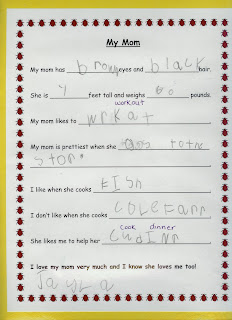 My Mom
My mom has brown eyes and black hair.
She is 4 feet tall and weighs 60 pounds.
workout
My mom likes to wrkat
My mom is prettiest when she gos to the
stor.
I like when she cooks FISh
I don't like when she cooks
cook dinner
She likes me to help her CudINr
I love my mom very much and I know she loves me too!
Jayla